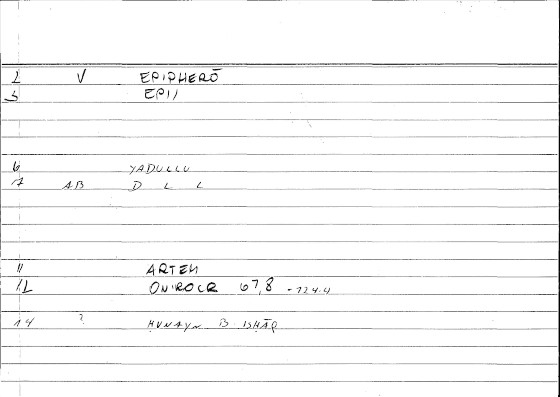 2 V EPIPHERŌ
3 EPI/
6 YADULLU
7 AB D L L
11 ARTEM
12 ONIROCR 67,8 - 124.4
14 ? ḤUNAYN B ISḤĀQ